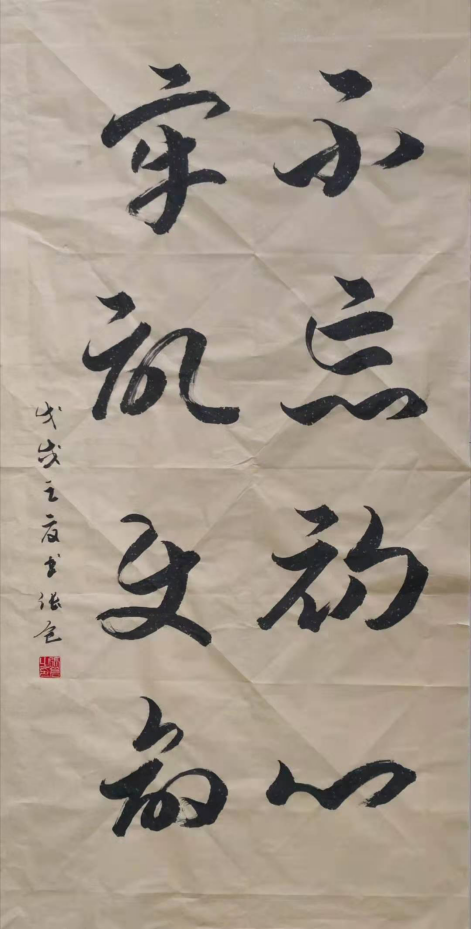 不忘初心
牢记使命
戊戌之夏书